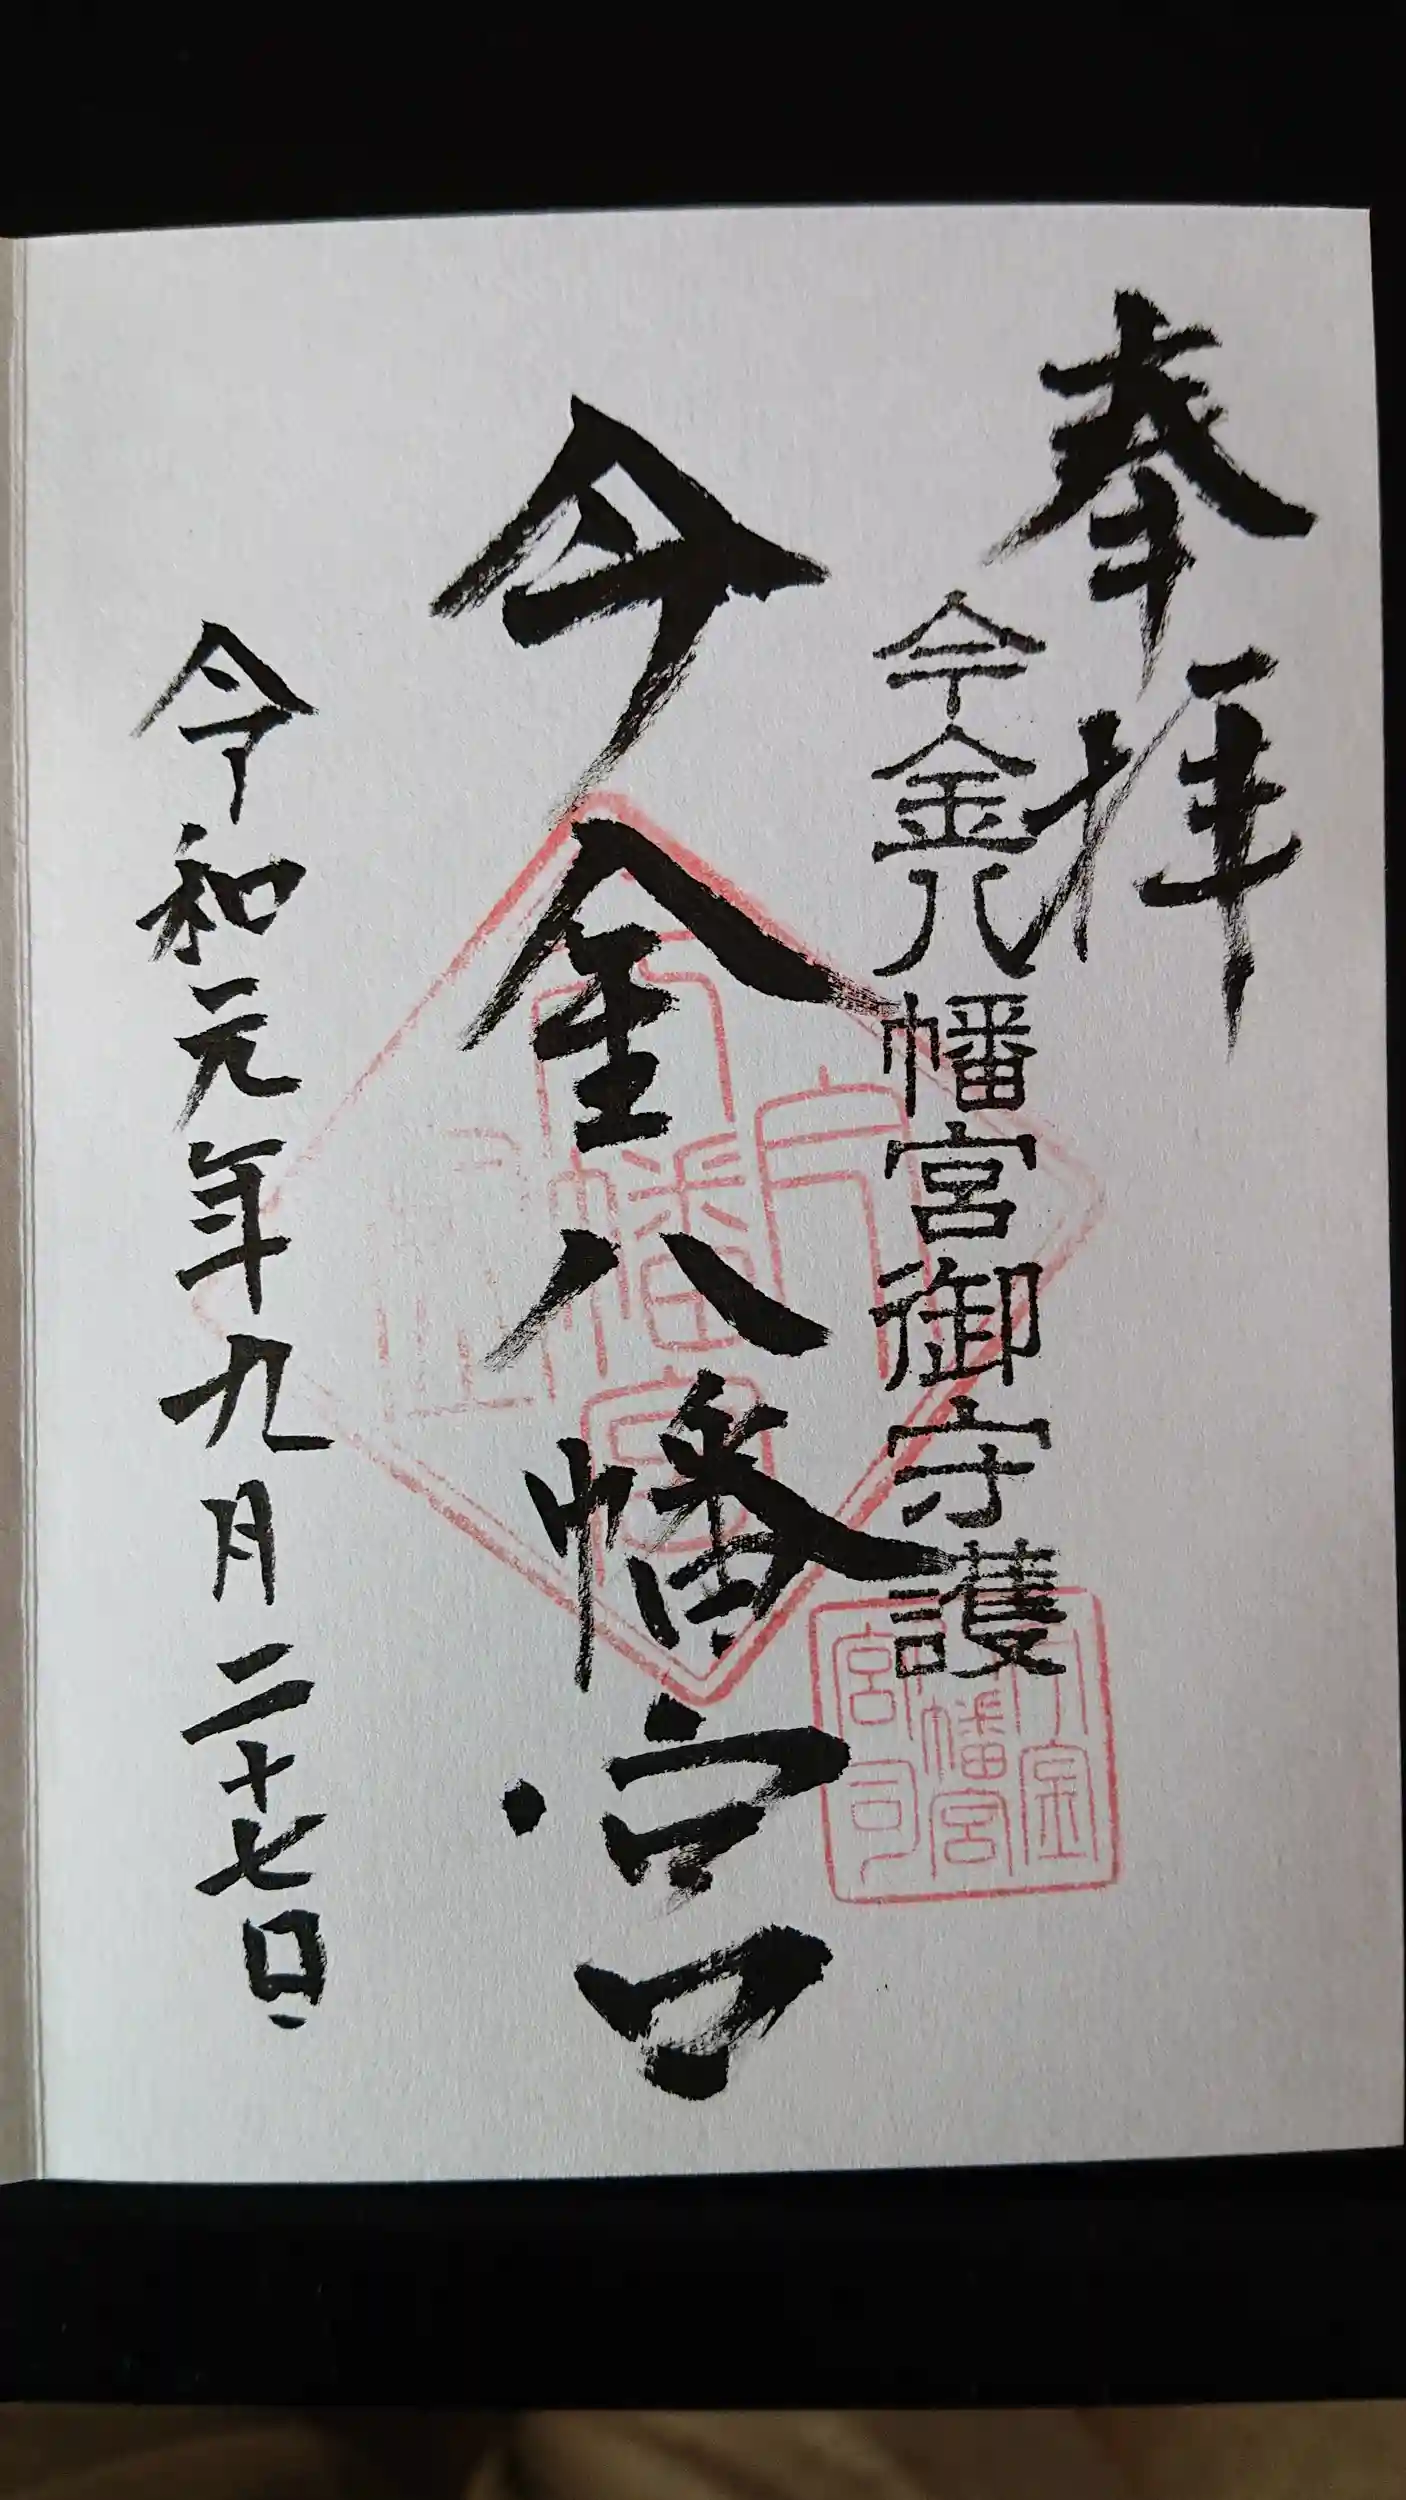 奉拝
今金八幡宮御守護
今金八幡宮
令和元年九月二十七日
今金
幡宮
宮司